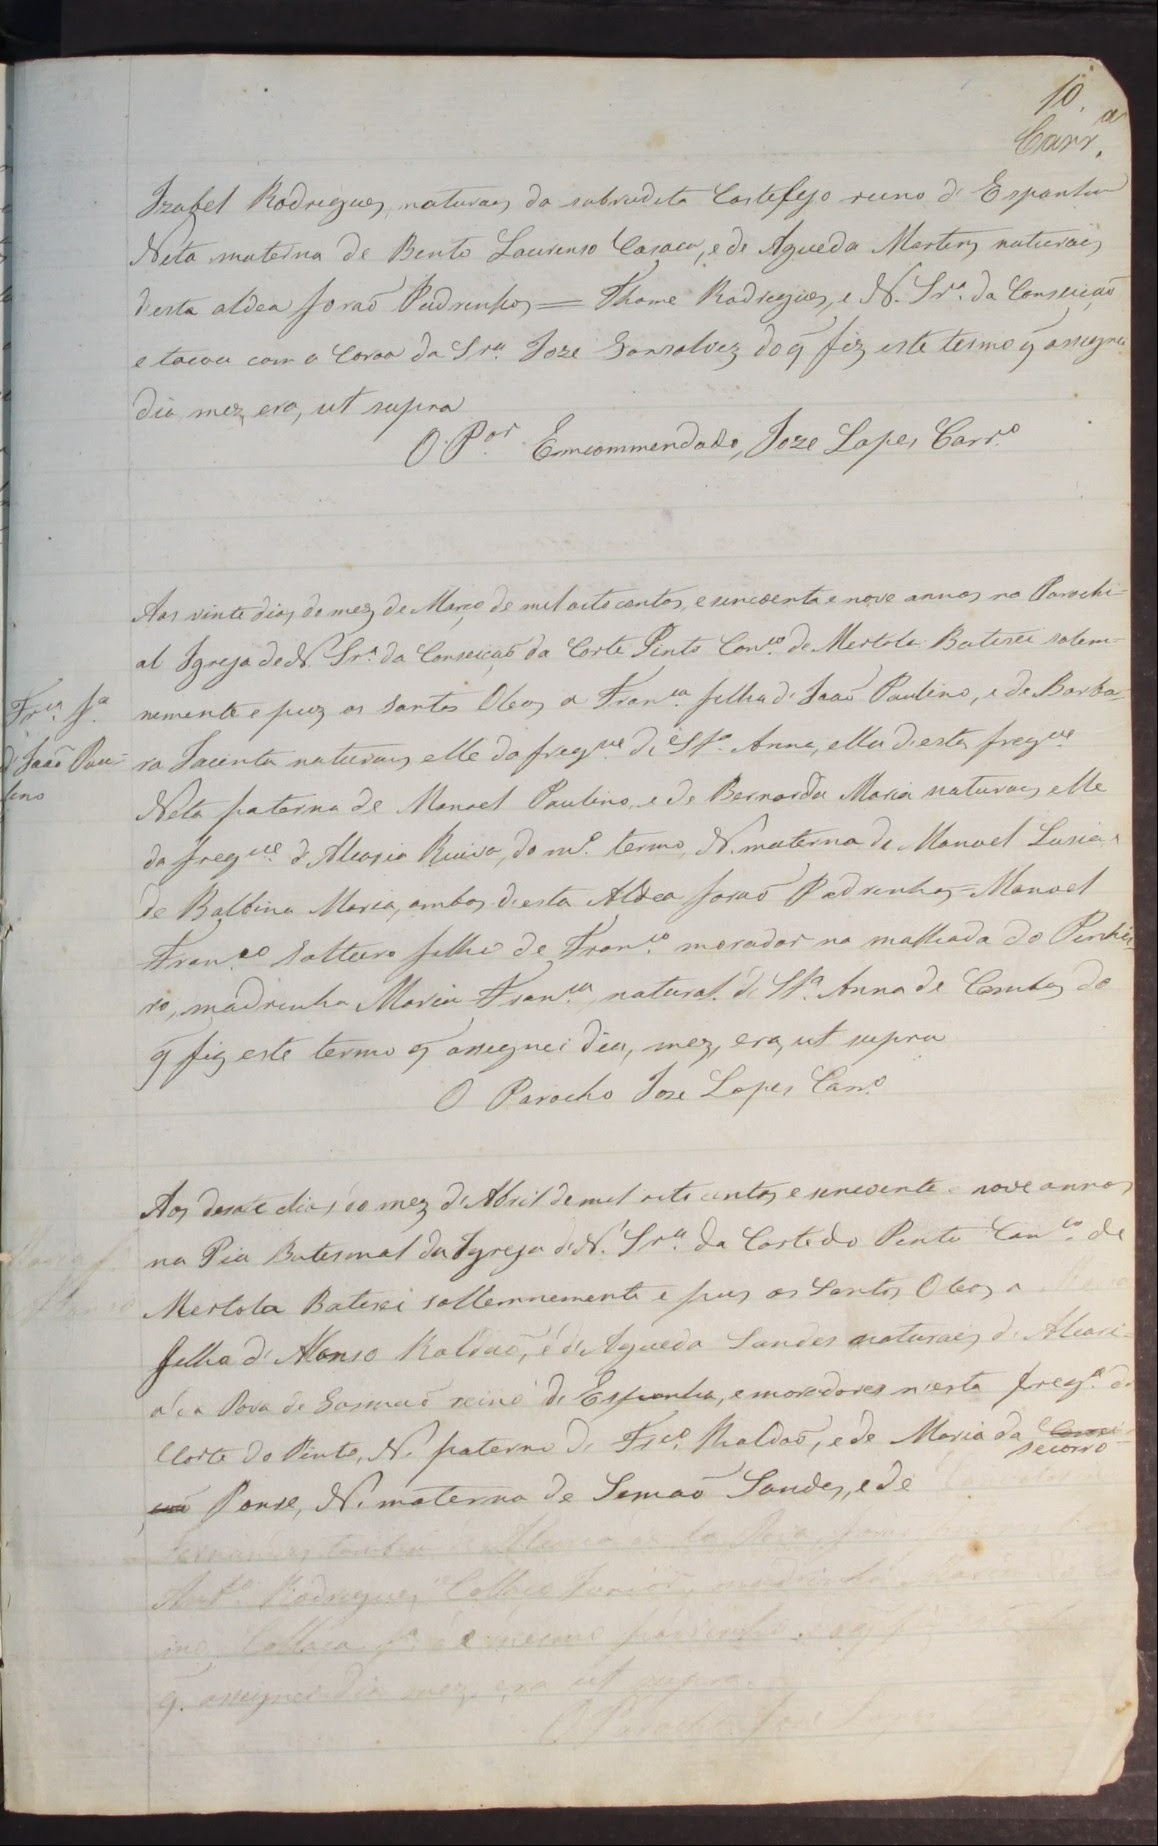 10.
Carr.ª
Izabel Rodrigues, naturaes da subredita Castelejo reino d' Espanha
Neta materna de Bento Lourenso Casaca, e de Agueda Martins naturaes
d'esta aldea foraõ Padrinhos = Thome Rodrigues, e N. Sr.ª da Conseicaõ
e tocou com a Coroa da Sr.ª Joze Gonsalvez do q̃ fiz este termo q̃ assignei
dia mez, era, ut supra
O P.or Emcommendado, Joze Lopes Carr.º
Aos vinte dias do mez de Março de mil oito centos, e sincoenta e nove annos na Parochi-
al Igreja de N. Sr.ª da Conseicaõ da Corte Pinto Con.co de Mertola Batisei solem-
Fr.ca f.ª
nemente e puz os Santos Oleos a Fran.ca filha d' Joaõ Paulino, e de Barba-
d' Joaõ Pau-
ra Jacinta naturaes elle da freg.ue de St.ª Anna, ella d'esta freg.ue
lino
Neta paterna de Manoel Paulino, e de Bernarda Maria naturaes elle
da freg.ue d' Alcaria Ruiva, do m.º termo, N. materna de Manoel Lusia e
de Balbina Maria, ambos d'esta Aldea foraõ Padrinhos = Manoel
Fran.co Solteiro filho de Fran.co morador na malhada do Pinhei-
ro, madrinha Maria Fran.ca, natural d' St.ª Anna de Cambas do
q̃ fiz este termo q̃ assignei dia, mez, era, ut supra
O Parocho Joze Lopes Carr.º
Aos desate dias do mez d' Abril de mil oito centos e sincoenta e nove annos
na Pia Batesmal da Igreja d' N. Sr.ª da Corte do Pinto Con.co de
Mertola Batisei sollemnemente e puz os Santos Oleos a
filha d' Afonso Roldaõ, e d' Agueda Sandes naturaes d'
Pova de reino d' Espanha, e moradores n'esta freg.ª da
Corte do Pinto, N. paterna d' Fr.co Roldaõ, e de Maria da
secorro
Ponse, N. materna de Simaõ Sandes, e de
Fernandes tambem
Ant.º Rodrigues Collaço Junior, madrinha Maria
Collaça f.ª do mesmo padrinho
q̃ assignei dia mez, era ut supra.
O Parocho Joze Lopes